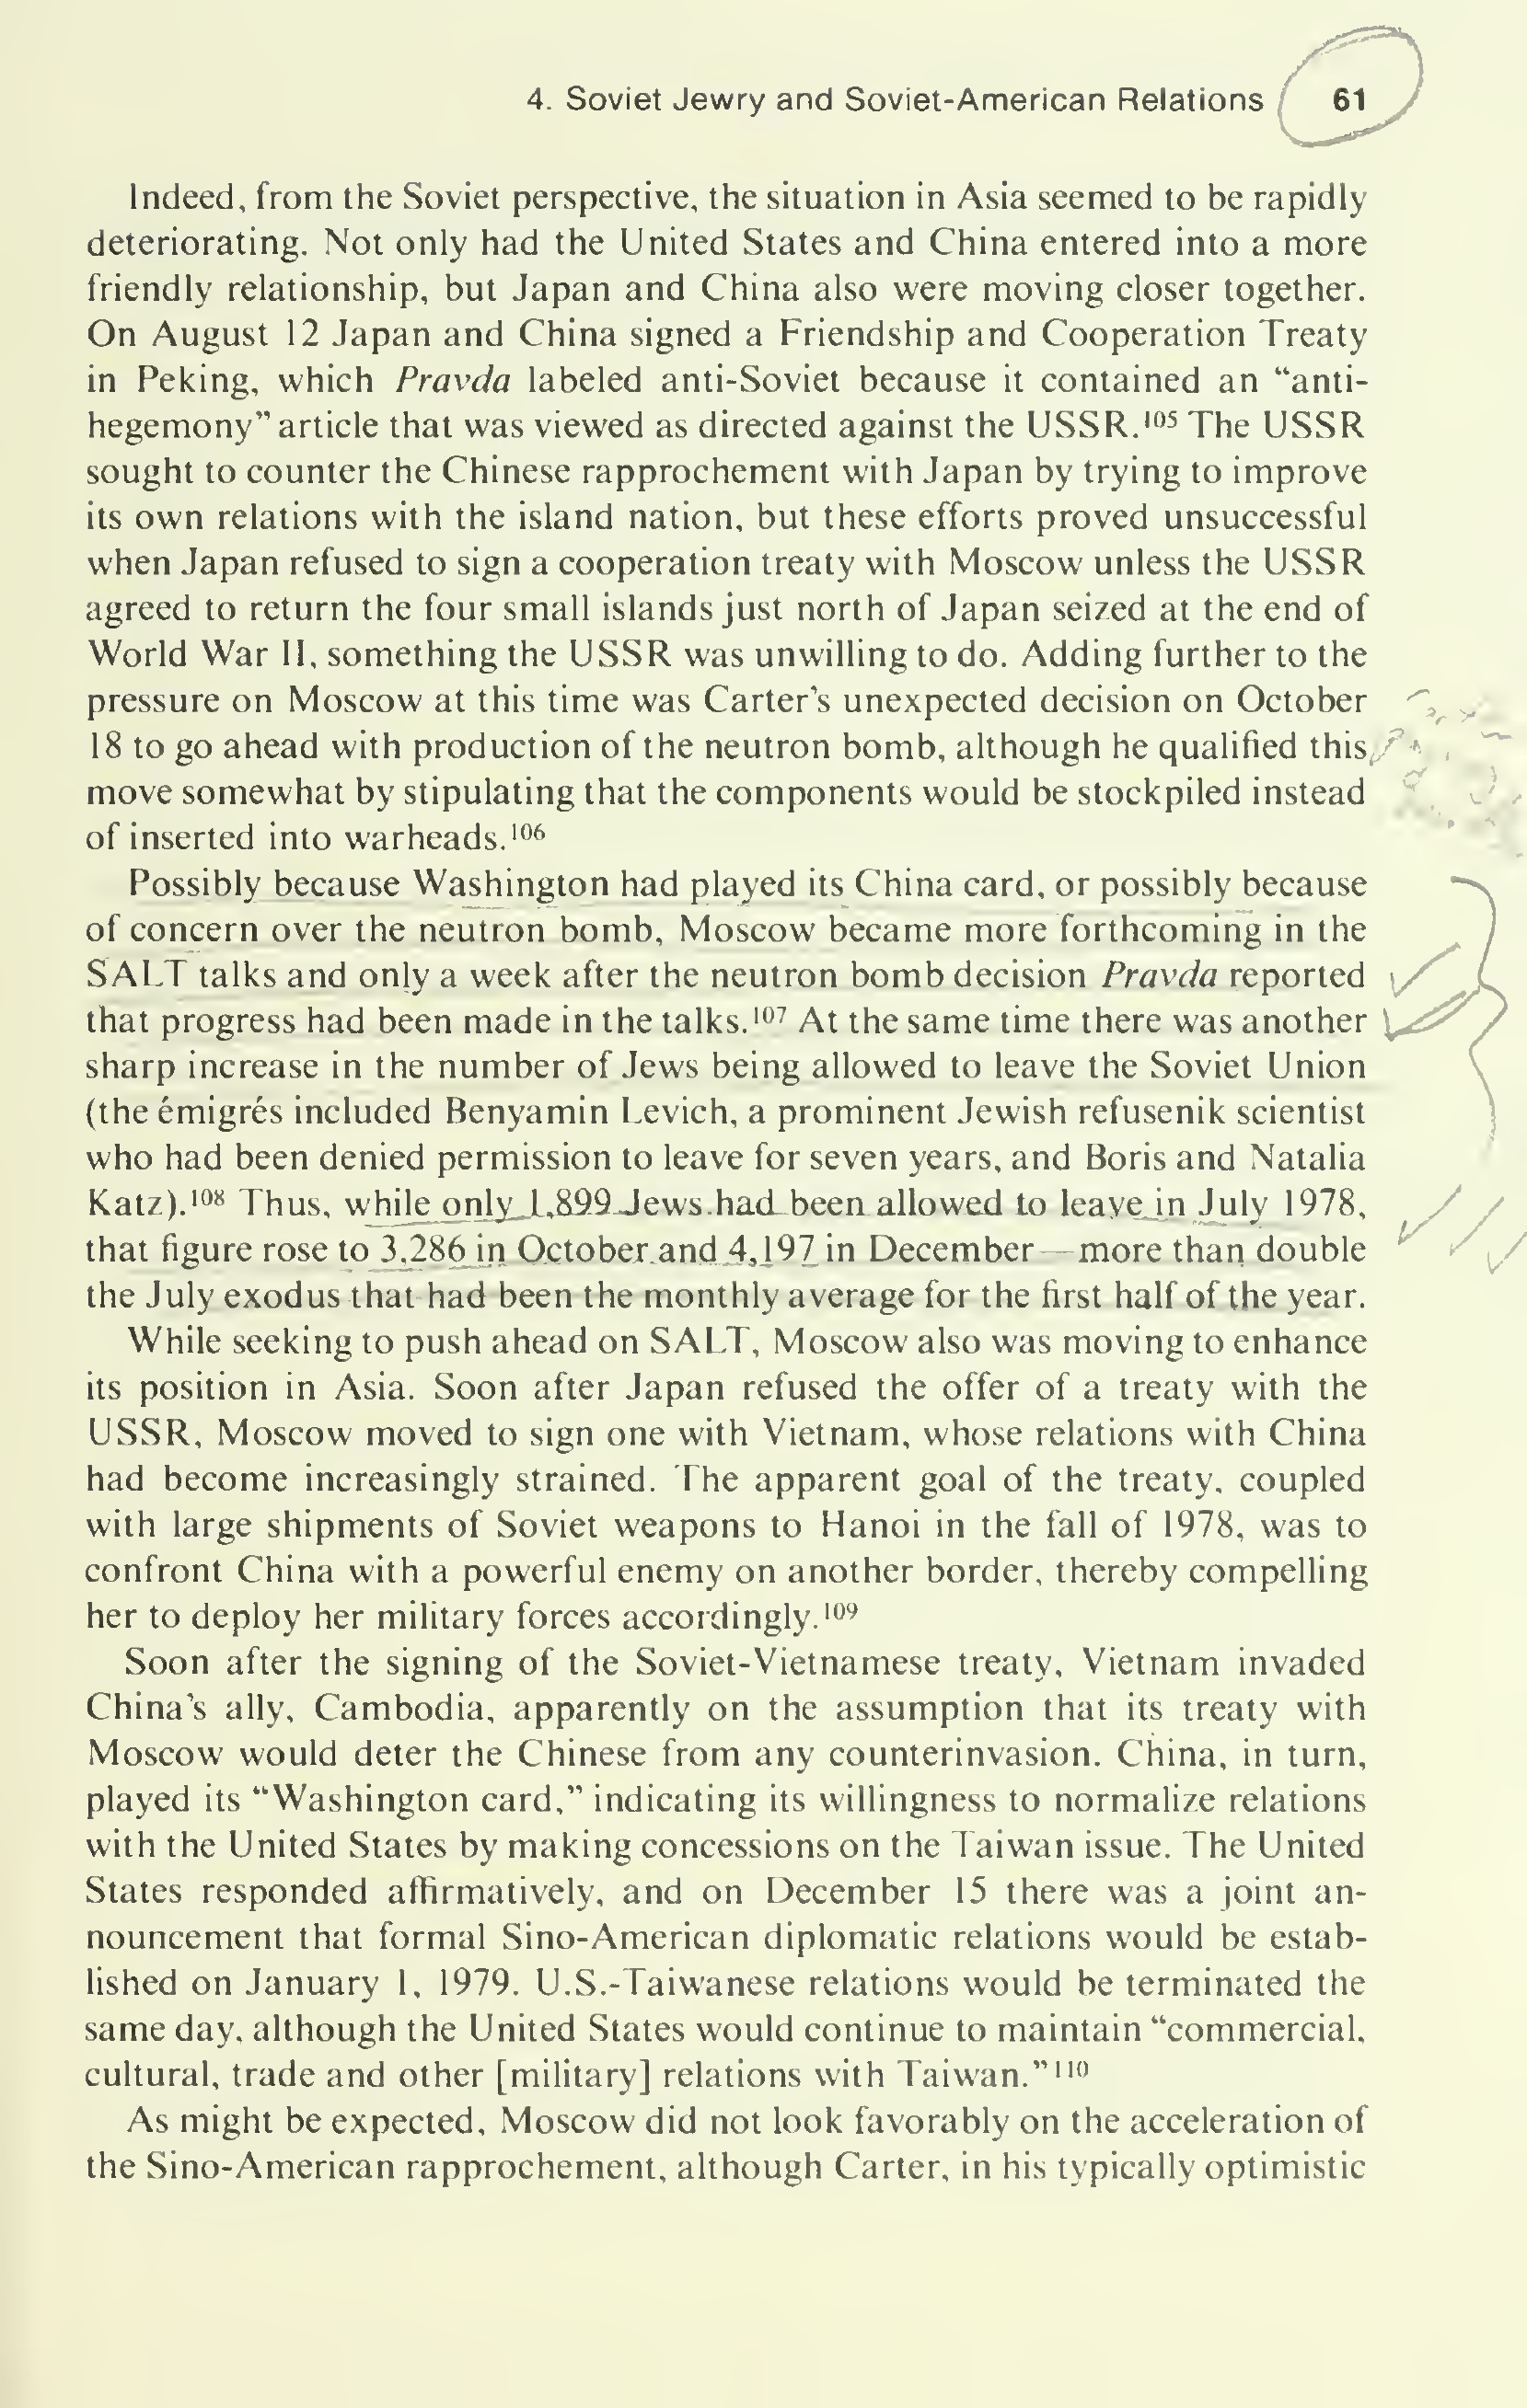 4. Soviet Jewry and Soviet-American Relations 61
Indeed, from the Soviet perspective, the situation in Asia seemed to be rapidly
deteriorating. Not only had the United States and China entered into a more
friendly relationship, but Japan and China also were moving closer together.
On August 12 Japan and China signed a Friendship and Cooperation Treaty
in Peking, which Pravda labeled anti-Soviet because it contained an “anti-
hegemony” article that was viewed as directed against the USSR.¹⁰⁵ The USSR
sought to counter the Chinese rapprochement with Japan by trying to improve
its own relations with the island nation, but these efforts proved unsuccessful
when Japan refused to sign a cooperation treaty with Moscow unless the USSR
agreed to return the four small islands just north of Japan seized at the end of
World War II, something the USSR was unwilling to do. Adding further to the
pressure on Moscow at this time was Carter’s unexpected decision on October
18 to go ahead with production of the neutron bomb, although he qualified this
move somewhat by stipulating that the components would be stockpiled instead
of inserted into warheads.¹⁰⁶
Possibly because Washington had played its China card, or possibly because
of concern over the neutron bomb, Moscow became more forthcoming in the
SALT talks and only a week after the neutron bomb decision Pravda reported
that progress had been made in the talks.¹⁰⁷ At the same time there was another
sharp increase in the number of Jews being allowed to leave the Soviet Union
(the émigrés included Benyamin Levich, a prominent Jewish refusenik scientist
who had been denied permission to leave for seven years, and Boris and Natalia
Katz).¹⁰⁸ Thus, while only 1,899 Jews had been allowed to leave in July 1978,
that figure rose to 3,286 in October and 4,197 in December—more than double
the July exodus that had been the monthly average for the first half of the year.
While seeking to push ahead on SALT, Moscow also was moving to enhance
its position in Asia. Soon after Japan refused the offer of a treaty with the
USSR, Moscow moved to sign one with Vietnam, whose relations with China
had become increasingly strained. The apparent goal of the treaty, coupled
with large shipments of Soviet weapons to Hanoi in the fall of 1978, was to
confront China with a powerful enemy on another border, thereby compelling
her to deploy her military forces accordingly.¹⁰⁹
Soon after the signing of the Soviet-Vietnamese treaty, Vietnam invaded
China’s ally, Cambodia, apparently on the assumption that its treaty with
Moscow would deter the Chinese from any counterinvasion. China, in turn,
played its “Washington card,” indicating its willingness to normalize relations
with the United States by making concessions on the Taiwan issue. The United
States responded affirmatively, and on December 15 there was a joint an-
nouncement that formal Sino-American diplomatic relations would be estab-
lished on January 1, 1979. U.S.-Taiwanese relations would be terminated the
same day, although the United States would continue to maintain “commercial,
cultural, trade and other [military] relations with Taiwan.”¹¹⁰
As might be expected, Moscow did not look favorably on the acceleration of
the Sino-American rapprochement, although Carter, in his typically optimistic